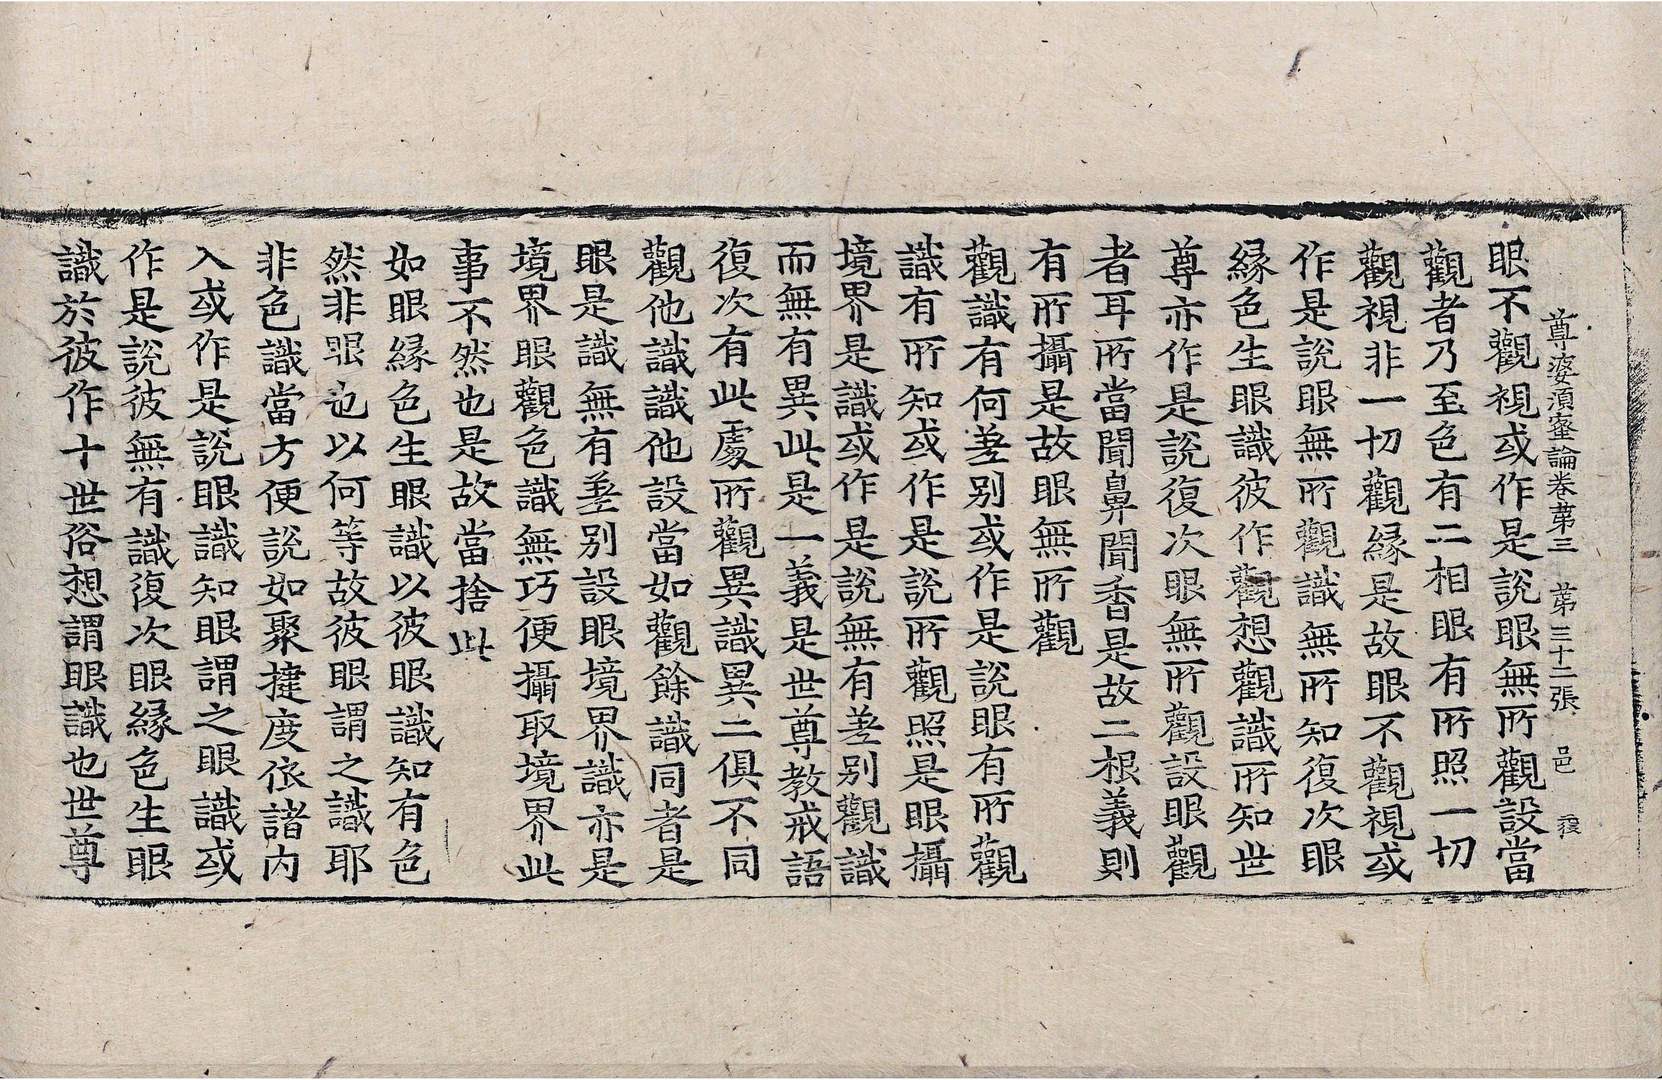 尊婆須蜜論卷苐三　苐三十二張　邑
眼不觀視或作是說眼無所觀設當
觀者乃至色有二相眼有所照一切
觀視非一切觀緣是故眼不觀視或
作是說眼無所觀識無所知復次眼
緣色生眼識彼作觀想觀識所知世
尊亦作是說復次眼無所觀設眼觀
者耳所當聞鼻聞香是故二根義則
有所攝是故眼無所觀
觀識有何差別或作是說眼有所觀
識有所知或作是說所觀照是眼攝
境界是識或作是說無有差別觀識
而無有異此是一義是世尊教戒語
復次有此處所觀異識異二俱不同
觀他識識他設當如觀餘識同者是
眼是識無有差別設眼境界識亦是
境界眼觀色識無巧便攝取境界此
事不然也是故當捨此
如眼緣色生眼識以彼眼識知有色
然非眼也以何等故彼眼謂之識耶
非色識當方便說如聚揵度依諸內
入或作是說眼識知眼謂之眼識或
作是說彼無有識復次眼緣色生眼
識於彼作十世俗想謂眼識也世尊